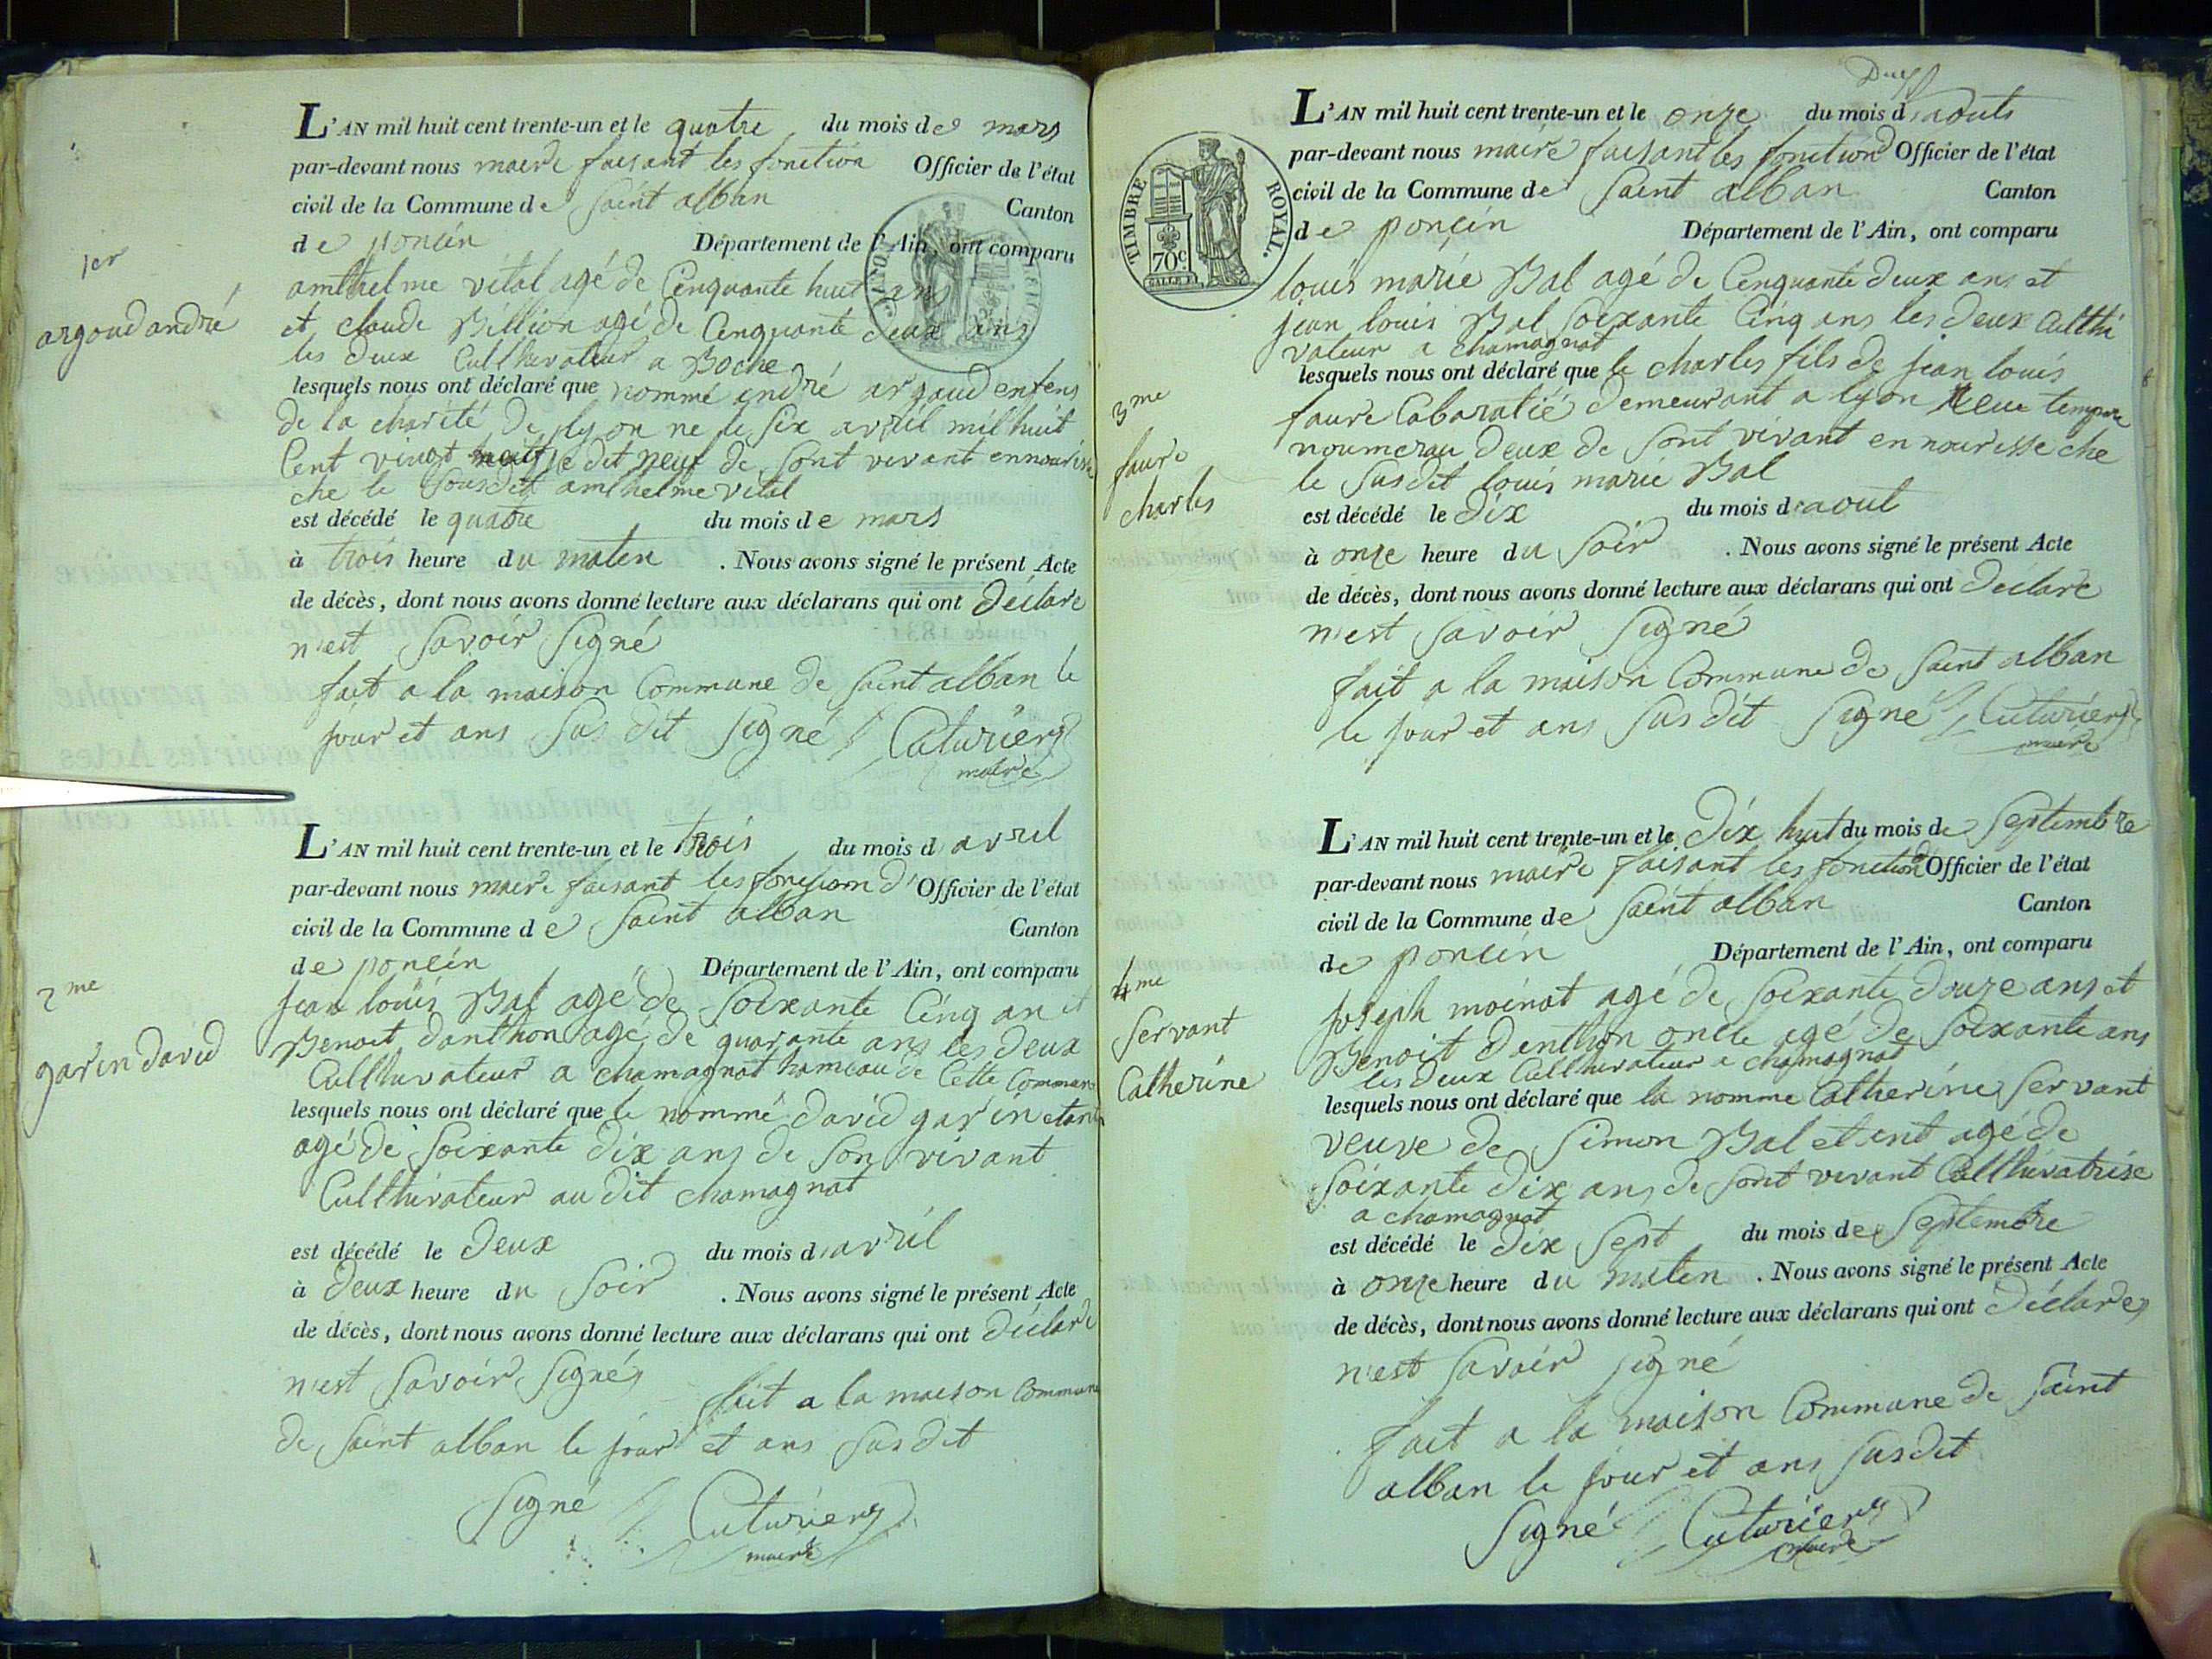 L'AN mil huit cent trente-un et le quatre du mois de mars
par-devant nous maire faisant les fonction Officier de l'état
civil de la Commune de Saint alban Canton
de poncin Département de l'Ain, ont comparu
1er
amthelme vital agé de Cenquante huit ans
argoud andré
et claude Billion agé de Cenquante deux ans
les deux Culthivateur a Boche
lesquels nous ont déclaré que nommé andré argoud enfens
de la charité De lyon ne le six avril mil huit
Cent vingt je dit neuf de sont vivant ennourisse
che le sousdit amthelme vital
est décédé le quatre du mois de mars
à trois heure du maten . Nous avons signé le présent Acte
de décès, dont nous avons donné lecture aux déclarans qui ont déclare
n'est savoir signé
fait a la maison Commune de Saint alban le
jour et ans sus dit signé Cuturier
maire
L'AN mil huit cent trente-un et le trois du mois d avril
par-devant nous maire faisant les d' Officier de l'état
civil de la Commune de Saint alban Canton
de poncin Département de l'Ain, ont comparu
2me
Jean louis Bal agé de Soixante Cinq an et
garin david
Benoit danthon agé de quarante ans les deux
Culthivateur a chamagnat hameau de Cette Commune
lesquels nous ont déclaré que le nommé david garin etant
agé de Soixante dix ans de son vivant
Culthivateur au dit chamagnat
est décédé le deux du mois d avril
à deux heure du soir . Nous avons signé le présent Acte
de décès, dont nous avons donné lecture aux déclarans qui ont déclare
n'est savoir signé fait a la maison Commune
de Saint alban le jour et ans susdit
signé Cuturier
maire
TIMBRE ROYAL.
70c
L'AN mil huit cent trente-un et le onze du mois d aouts
par-devant nous maire faisant les fonction Officier de l'état
civil de la Commune de Saint alban Canton
de poncin Département de l'Ain, ont comparu
louis marie Bal agé de Cenquante deux ans et
jean louis Bal Soixante Cinq ans les deux Culthi
vateur a chamagnat
lesquels nous ont déclaré que le charles fils de jean louis
3me
faure Cabaratié demeurant a lyon
noumerau deux de sont vivant en nourisse che
faure
charles
le susdit louis marie Bal
est décédé le dix du mois d aout
à onze heure du soir . Nous avons signé le présent Acte
de décès, dont nous avons donné lecture aux déclarans qui ont déclare
n'est savoir signé
fait a la maison Commune de Saint alban
le jour et ans susdit signé Cuturier
maire
L'AN mil huit cent trente-un et le dix huit du mois de Septembre
par-devant nous maire faisant les fonction Officier de l'état
civil de la Commune de Saint alban Canton
de poncin Département de l'Ain, ont comparu
4me
joseph moinat agé de Soixante douze ans et
Servant
Benoit denthon oncle agé de soixante ans
les deux Culthivateur a chamagnat
Catherine
lesquels nous ont déclaré que la nomme Catherine Servant
veuve de Simon Bal etent agé de
Soixante dix ans de sont vivant Culthivatrise
a chamagnat
est décédé le dix sept du mois de Septembre
à onze heure du maten . Nous avons signé le présent Acte
de décès, dont nous avons donné lecture aux déclarans qui ont déclare
n'est savoir signé
fait a la maison Commune de Saint
alban le jour et ans susdit
signé Cuturier
maire